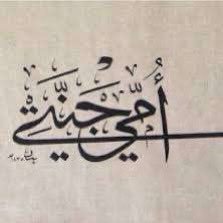 أُمّي جَنّتي